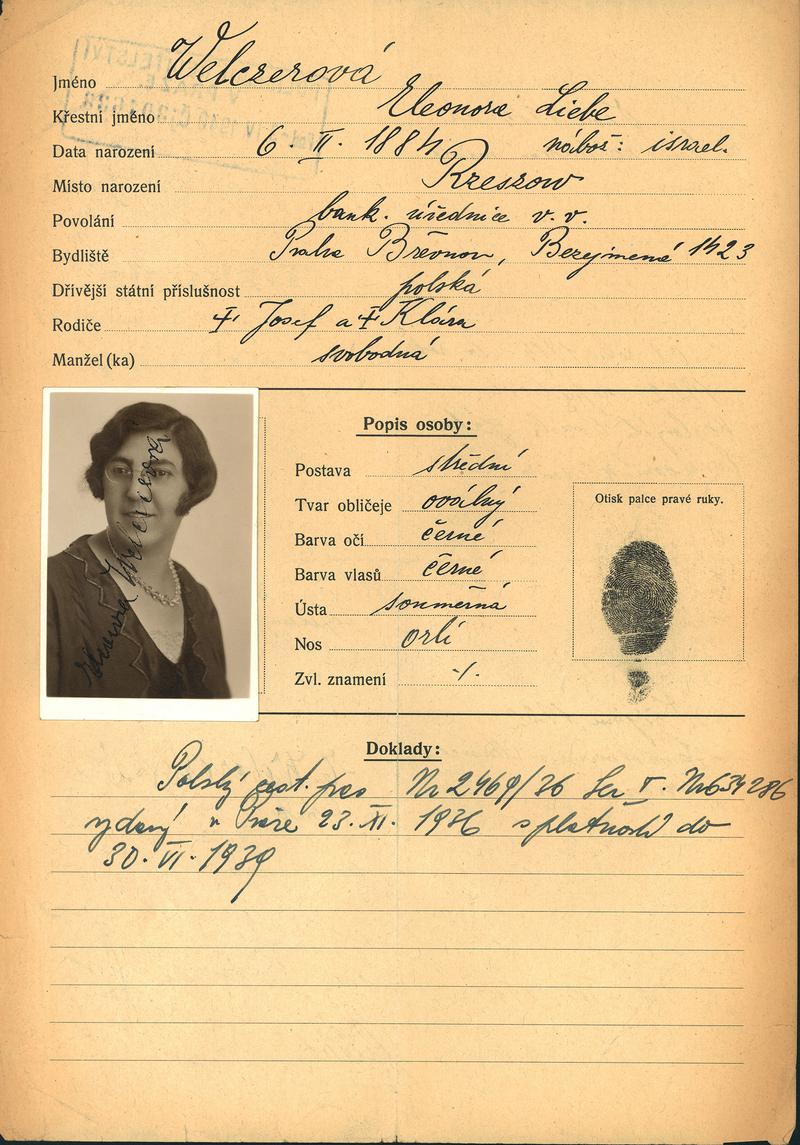 Jméno Welczerová
Křestní jméno Eleonora Liebe
Data narození 6. II. 1884 nábož: israel.
Místo narození Rzeszow
Povolání bank. úřednice v. v.
Bydliště Praha Břevnov, Bezejmená 1423
Dřívější státní příslušnost polská
Rodiče Josef a Klára
Manžel (ka) svobodná
Popis osoby:
Postava střední
Tvar obličeje oválný
Barva očí černé
Barva vlasů černé
Ústa souměrná
Nos orlí
Zvl. znamení -/.
Otisk palce pravé ruky.
Welczerová
Doklady:
Polský cest. pas Nr 2469/36 Ser I. Nr 634286
vydaný v Praze 23. XI. 1936 s platností do
30. VI. 1939